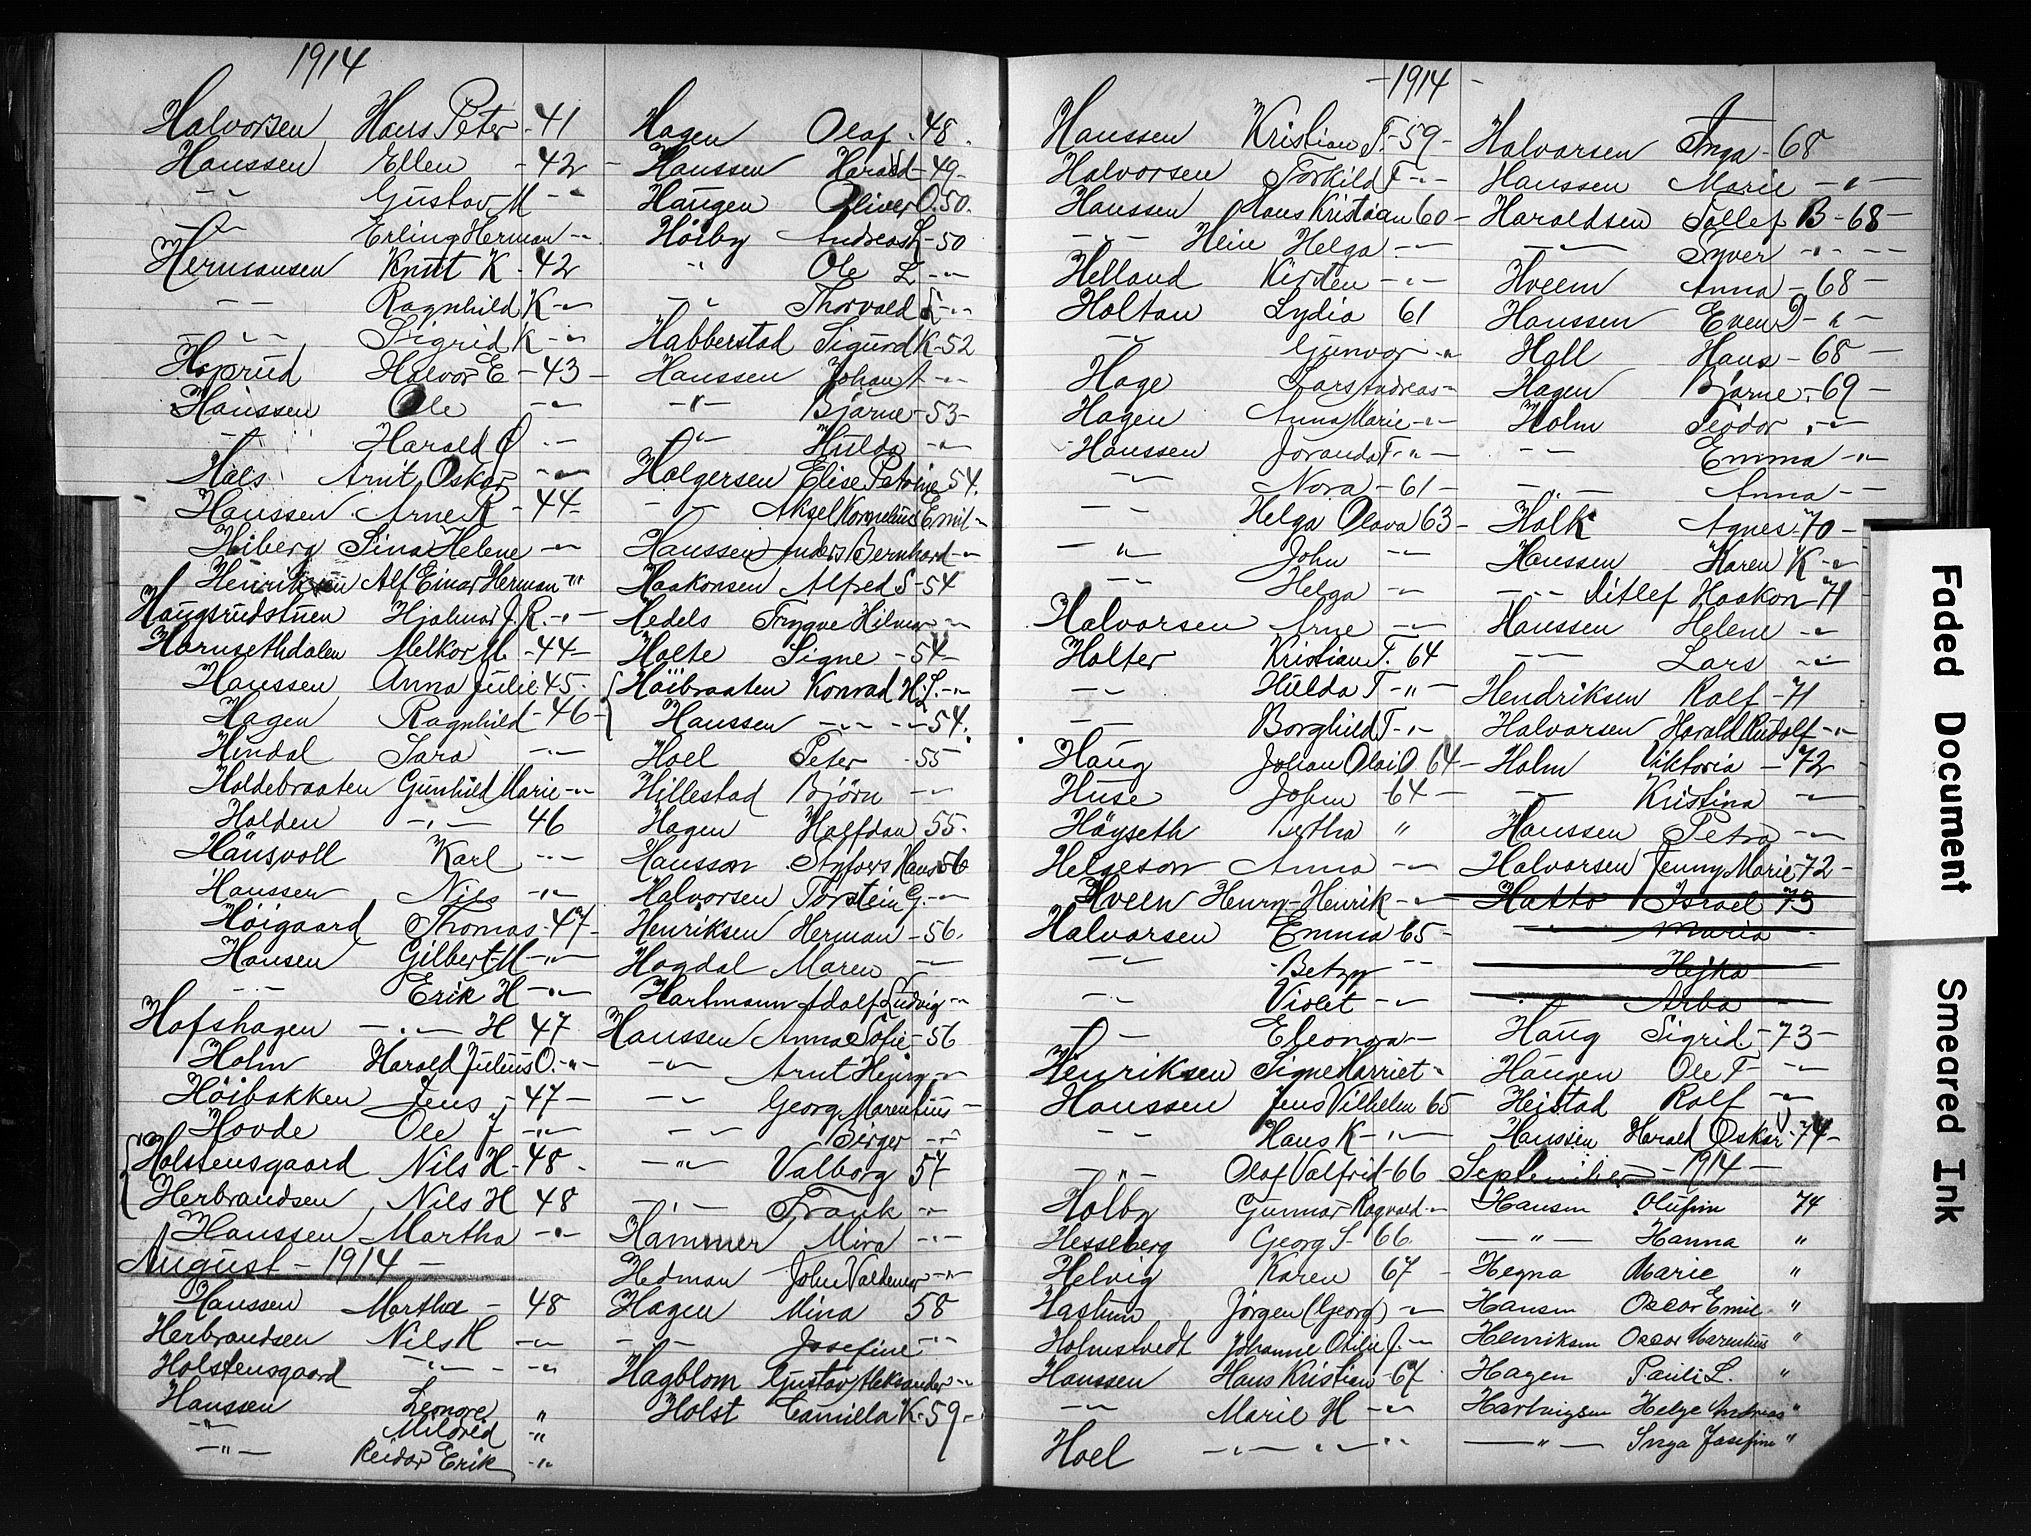 1914
Halvorsen Hans Peter - 41
Hanssen Ellen - 42
- " - Gustav M - "
- " - Erling Herman - "
Hermansen Knut K - 42
- " - Ragnhild K - "
- " - Sigrid K - "
Halvor E - 43 -
Hanssen Ole - " -
- " - Harald O - " -
Hals Arnt Oskar - " -
Hanssen Arne R - 44 -
Hiberg Sina Helene - " -
Henriksen Alf Einar Herman - "
Haugsrudstuen Hjalmar J. R. - " -
Harnsethdalen Melkor M - 44 -
Hanssen Anna Julie 45 -
Hagen Ragnhild - 46 -
Hindal Sara - " -
Holdebraaten Gunhild Marie - "
Holden - " - 46
Hänsvoll Karl - " -
Hanssen Nils - " -
Höigaard Thomas - 47 -
Hansen Gilbert M - " -
- " - Erik H - " -
Hofshagen - " - H 47
Holm Harald Julius O. - " -
Höibakken Jens - 47 -
Hovde Ole J - " -
Holstensgaard Nils H - 48 -
Herbrandsen Nils H 48
Hanssen Martha - " -
August - 1914 -
Hanssen Martha - 48
Herbrandsen Nils H - " -
Holstensgaard - " - - "
Hanssen Leonore "
- " - Mildred - "
- " - Reidar Erik - "
Hagen Olaf - 48.
Hanssen Harald - 49 -
Haugen Oliver O. 50.
Höiby Andreas L - 50
" Ole L - "
- " - Thorvald L - "
Habberstad Sigurd K - 52
Hanssen Johan A - "
- " - Bjarne - 53 -
- " - Hulda - "
Holgersen Elise Petrine 54.
- " - Aksel Kornelius Emil - "
Hanssen Anders Bernhard - "
Haakonsen Alfred S - 54
Hedels Trygve Hilmar - "
Holte Signe - 54 -
Höibraaten Konrad H. S. - "
Hanssen - " - - " - 54.
Hoel Peter - 55
Hillestad Björn - "
Hagen Halfdan 55.
Hansson Hans 56
Halvorsen Torstein G. - "
Henriksen Herman - 56.
Hogdal Maren - "
Hartmann Adolf Ludvig - "
Hanssen Anna Sofie - 56
- " - Arnt Henry - "
- " - Georg Marentius -
- " - Birger - "
- " - Valborg 57
- " - Frank - "
Hammer Mira - " -
Hedman John Valdemar - "
Hagen Mina 58
- " - Josefine - "
Hagblom Gustav Aleksander - "
Holst Camilla K - 59 -
- 1914 -
Hanssen Kristian T. - 59 -
Halvorsen Torkild T - " -
Hanssen Hans Kristian 60 -
- " - Hein Helga - "
Helland Kirsten - " -
Holtan Lydia 61
- " - Gunvor - "
Hage Lars Andreas - "
Hagen Anna Marie - "
Hanssen Joranda T - " -
- " - Nora - 61 -
- " - Helga Olava 63 -
- " - John - "
- " - Helga - "
Halvorsen Arne - "
Holter Kristian T. 64
- " - Hulda T - " -
- " - Borghild T - "
Haug Johan Olai O. 64 -
Huse John 64 -
Höyseth Bertha "
Helgeson Anna - "
Hveen Henry Henrik - "
Halvorsen Emma 65 -
- " - Betzy - "
- " - Violet - "
- " - Eleonora -
Henriksen Signe Harriet "
Hanssen Jens Vilhelm 65
- " - Hans K - " -
- " - Olaf Valfrid - 66
Holby Gunnar Ragvald - "
Hesseberg Georg S - 66.
Helvig Karen 67 -
Haslum Jörgen (Georg) - "
Holmstvedt Johanne Otilie J. - "
Hanssen Hans Kristian - 67.
- " - Marie H - "
Hoel - " - " - " - "
Halvorsen Inga - 68
Hanssen Marie - " -
Haraldsen Tollef B - 68 -
- " - Syver - " -
Hveem Anna - 68 -
Hanssen Even D - " -
Hall Hans - 68 -
Hagen Bjarne - 69 -
Holm Teodor - "
- " - Emma - " -
- " - Anna - "
Holk Agnes 70 -
Hanssen Karen K - "
- " - Ditlef Haakon 71
Hanssen Helene - "
- " - Lars - "
Hendriksen Rolf - 71
Halvorsen Harald Rudolf - "
Holm Viktoria - 72
- " - Kristina - "
Hanssen Petra - "
Halvorsen Jenny Marie - 72 -
Hatto Israel 73
- " - Maria - "
Hejka
- " - Arba -
Haug Sigrid - 73 -
Haugen Ole T - "
Heistad Rolf - "
Hanssen Harald Oskar - 74 -
September - 1914 -
Hansen Olufine 74
- " - Hanna "
Hegna Marie "
Hansen Oscar Emil "
Henriksen Oscar Marentius "
Hagen Pauli L. "
Hartvigsen Helge Andreas "
- " - Inga Josefine "
Faded Document
Smeared Ink